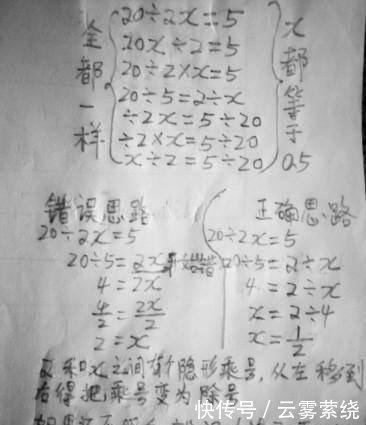 全都一样
20÷2x=5
10x÷2=5
20÷2×x=5
20÷5=2÷x
÷2x=5÷20
÷2×x=5÷20
x÷2=5÷20
x都等于0.5
错误思路
20÷2x=5
20÷5=2x开始错
4=2x
4/2=2x/2
2=x
正确思路
20÷2x=5
20÷5=2÷x
4=2÷x
x=2÷4
x=1/2
2和x之间有个隐形乘号,从左移到
右得把乘号变为除号
快传号/云雾萦绕